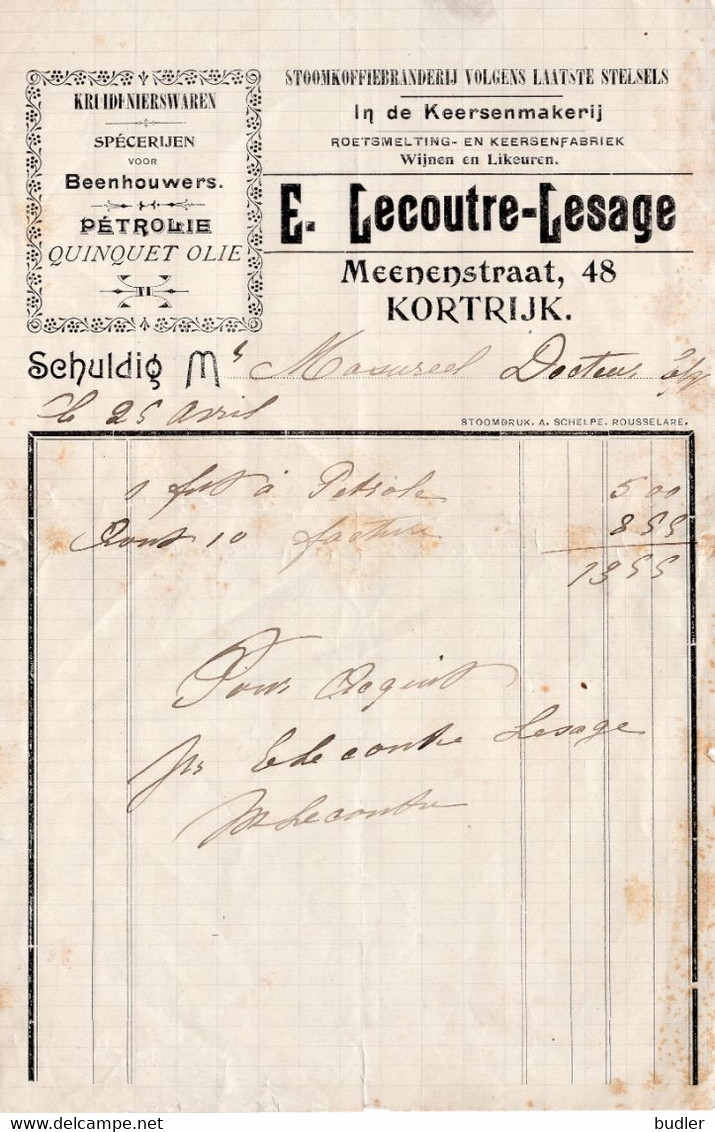 KRUIDENIERSWAREN
SPÉCERIJEN
VOOR
Beenhouwers.
PÉTROLIE
QUINQUET OLIE
STOOMKOFFIEBRANDERIJ VOLGENS LAATSTE STELSELS
In de Keersenmakerij
ROETSMELTING- EN KEERSENFABRIEK
Wijnen en Likeuren.
E. Lecoutre-Lesage
Meenenstraat, 48
KORTRIJK.
Schuldig Mr Masureel Docteur
25 Avril
STOOMDRUK. A. SCHELPE. ROUSSELARE.
1 fut à Petrole 5,00
10 facture 8 55
13 55
Pour Acquit
pr E Lecoutre Lesage
M Lecoutre
www.delcampe.net
budler